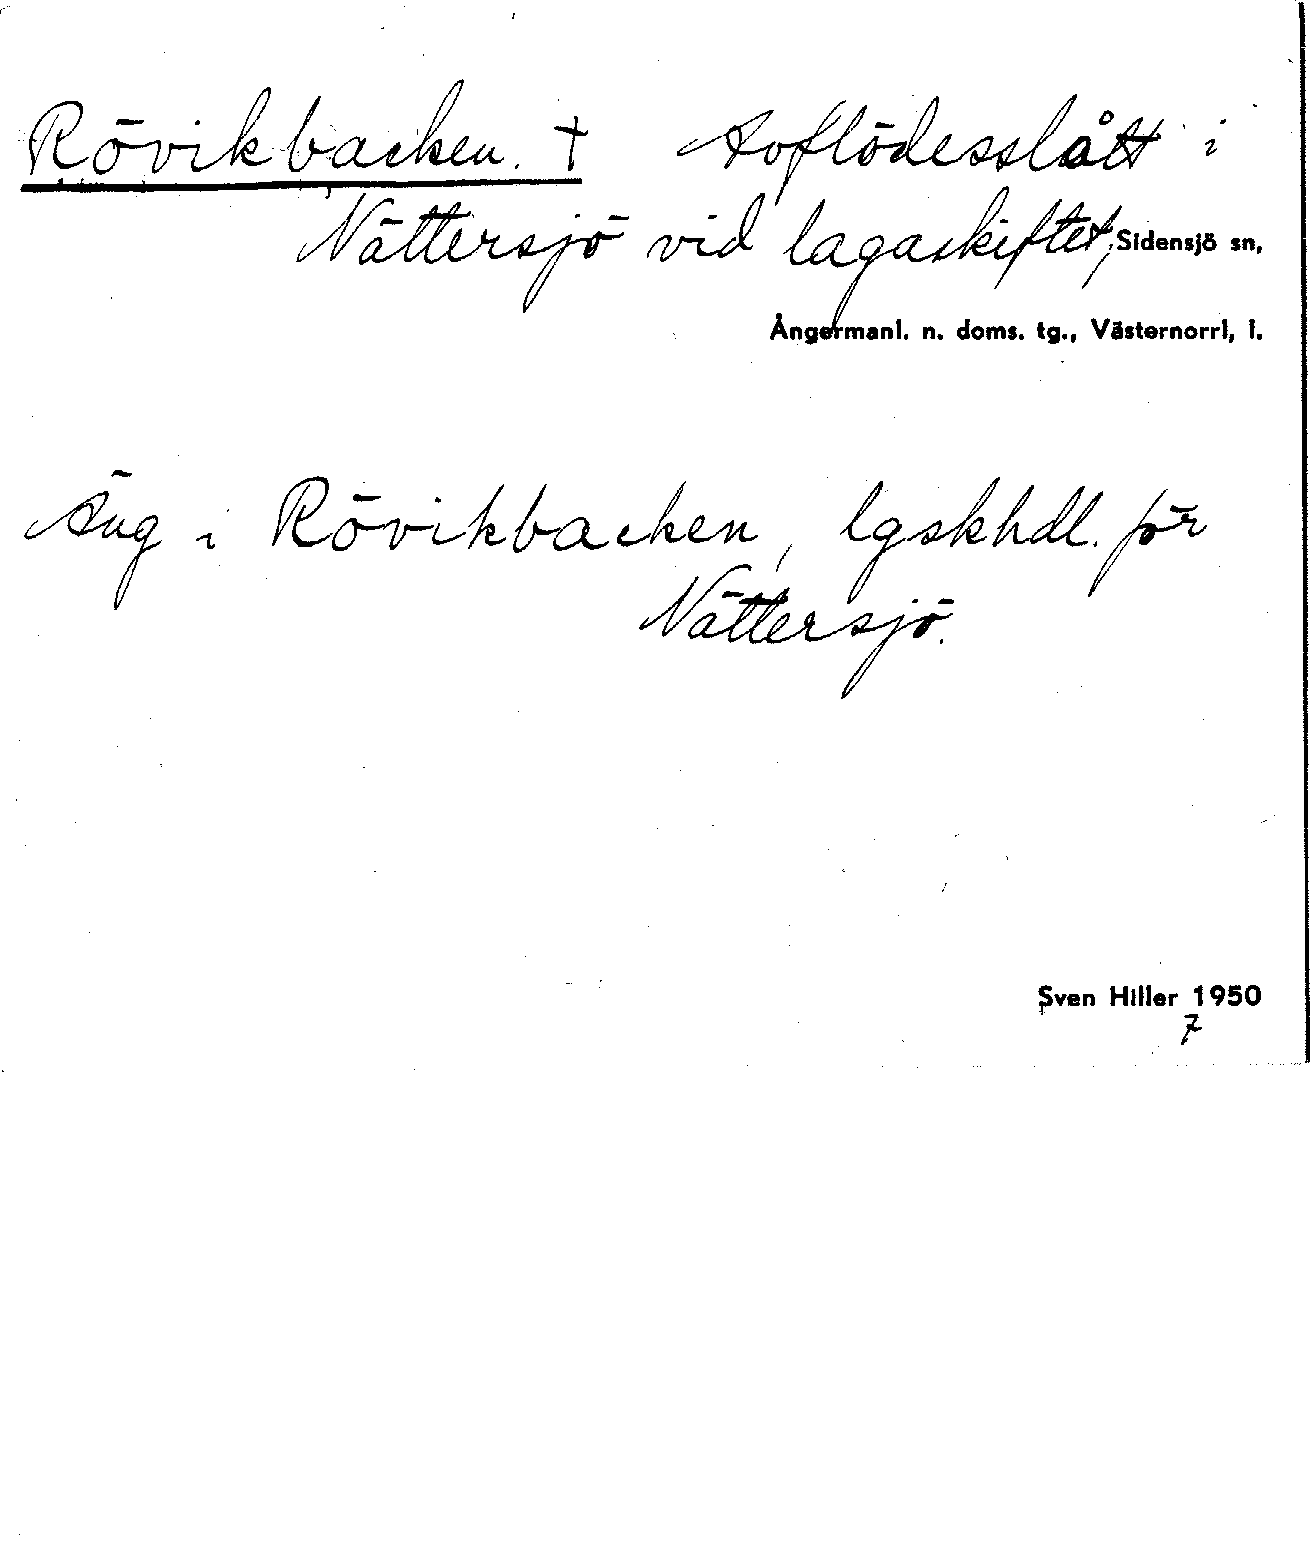 Rövikbacken. † Avflödesslått i
Nättersjö vid lagaskiftet, Sidensjö sn,
Ångermanl. n. doms. tg., Västernorrl, l.
Äng i Rövikbacken, lgskhdl. för
Nättersjö.
Sven Hiller 1950
7